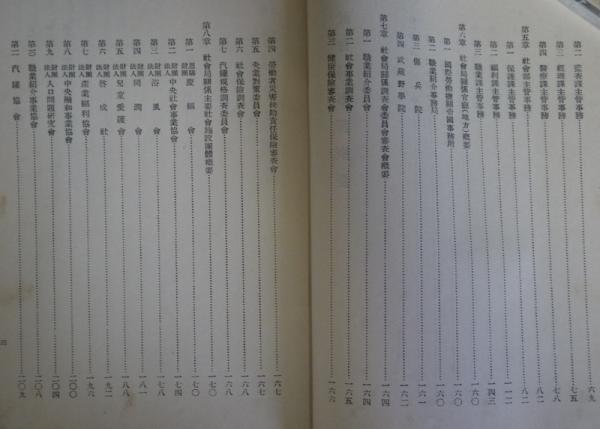 第一 監査課主管事務 六九
第二 經理課主管事務 七五
第三 醫療課主管事務 七八
第四 八二
第五章 社會部主管事務 八二
第一 保護課主管事務 八二
第二 福利課主管事務 一一二
第三 職業課主管事務 一四三
第六章 社會局關係官廳(地方)概要 一六〇
第一 國際勞働機關帝國事務所 一六〇
第二 職業紹介事務局 一六〇
第三 傷兵院 一六一
第四 武藏野學院 一六二
第七章 社會局關係調査委員會審査會概要 一六四
第一 職業紹介委員會 一六四
第二 社會事業調査會 一六五
第三 健康保險審査會 一六六
第四 勞働者災害扶助責任保險審査會 一六七
第五 失業對策委員會 一六七
第六 社會保險調査會 一六八
第七 汽罐規格調査委員會 一六八
第八章 社會局關係主要社會施設團體概要 一七〇
第一 恩賜財團慶福會 一七〇
第二 財團法人中央社會事業協會 一七四
第三 財團法人浴風會 一七八
第四 財團法人同潤會 一八一
第五 財團法人兒童愛護會 一八八
第六 財團法人啓成社 一九二
第七 財團法人產業福利協會 一九六
第八 財團法人中央融和事業協會 二〇〇
第九 財團法人人口問題研究會 二〇四
第一〇 職業紹介事業協會 二〇八
第一一 汽罐協會 二〇九
三